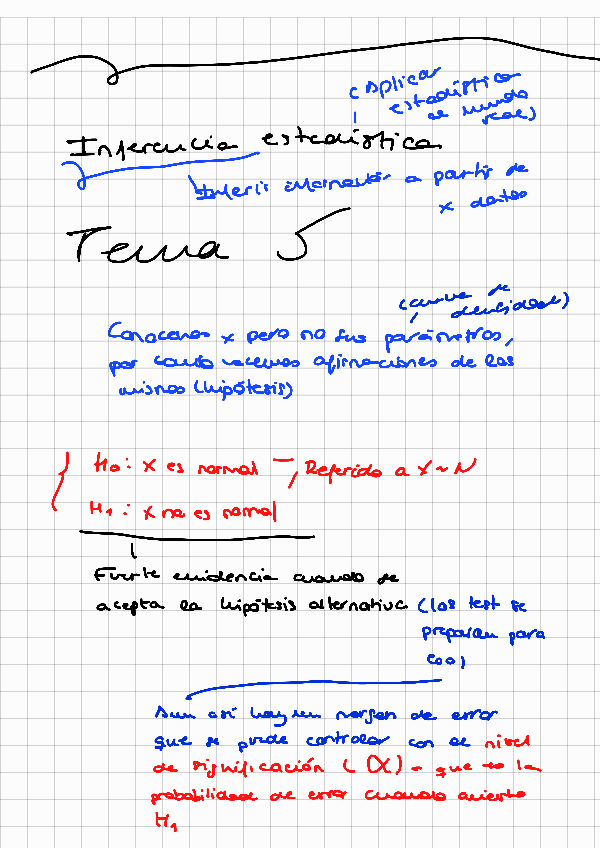 (Aplicar
estadística
al mundo
real)
Inferencia estadística
Inferir información a partir de
x datos
Tema 5
(curva de
densidad)
Conocemos x pero no sus parámetros,
por tanto hacemos afirmaciones de los
mismos (hipótesis)
H0: X es normal → Referido a X~N
H1: X no es normal
Fuerte evidencia cuando se
acepta la hipótesis alternativa (los test se
preparan para
eso)
Aun así hay un margen de error
que se puede controlar con el nivel
de significación (α) - que es la
probabilidad de error cuando acierto
H1